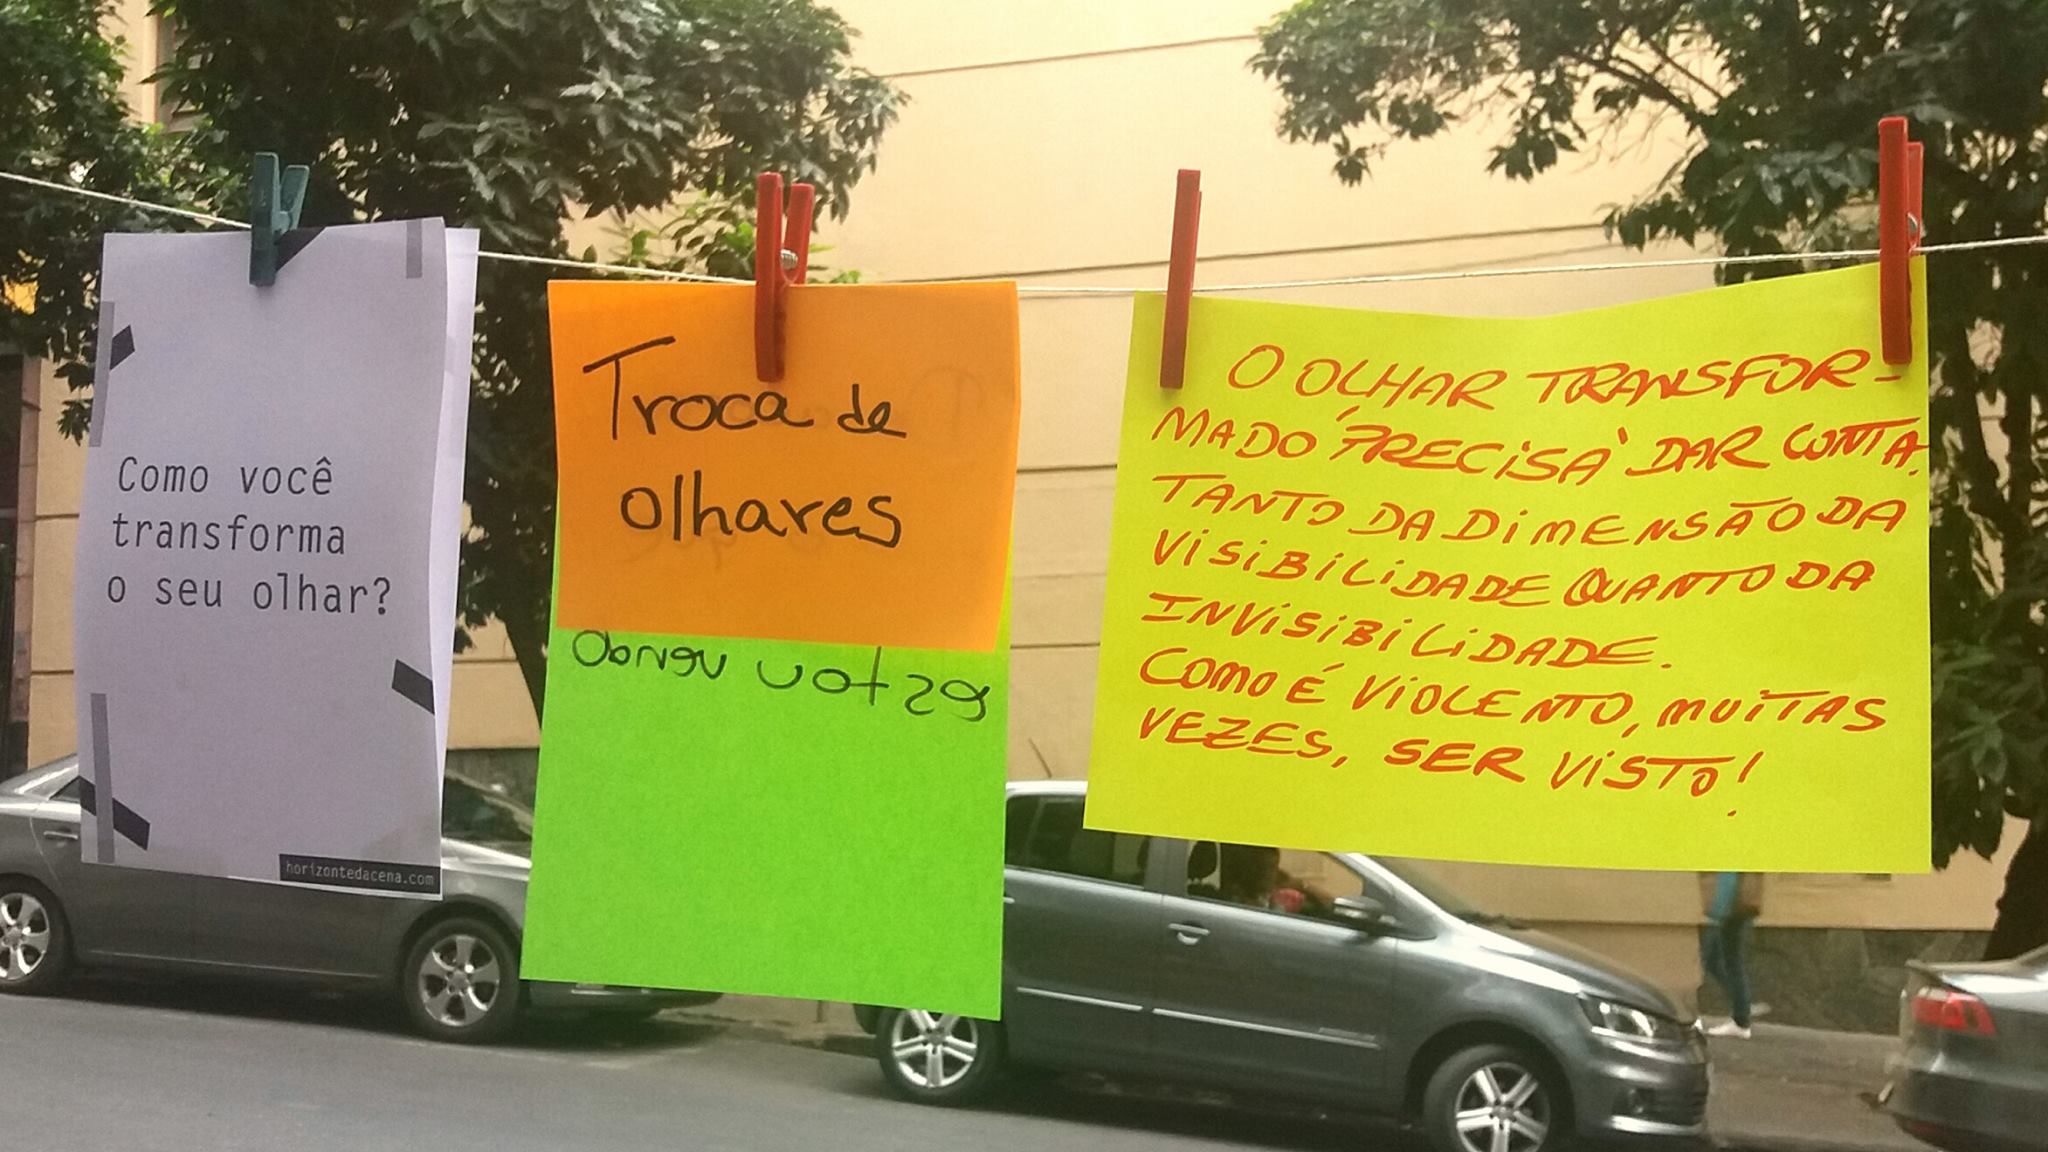 Como você
transforma
o seu olhar?
horizontedacena.com
Troca de
olhares
O OLHAR TRANSFOR-
MADO PRECISA DAR CONTA
TANTO DA DIMENSÃO DA
VISIBILIDADE QUANTO DA
INVISIBILIDADE.
COMO É VIOLENTO, MUITAS
VEZES, SER VISTO!